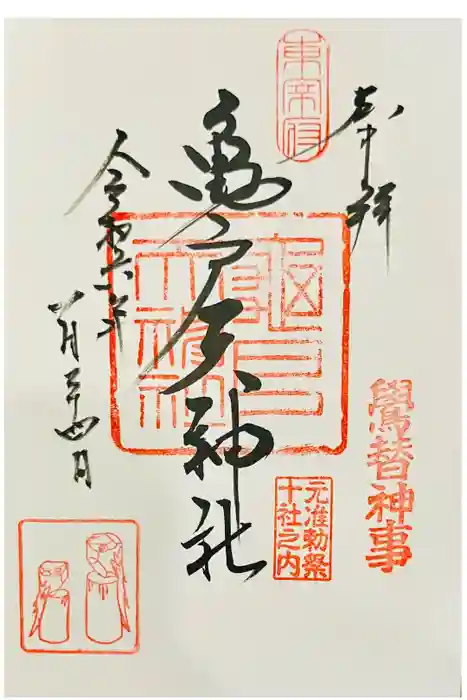 奉拝
東宰府
亀戸天神社
令和六年
一月二十四日
鷽替神事
元准勅祭
十社之内